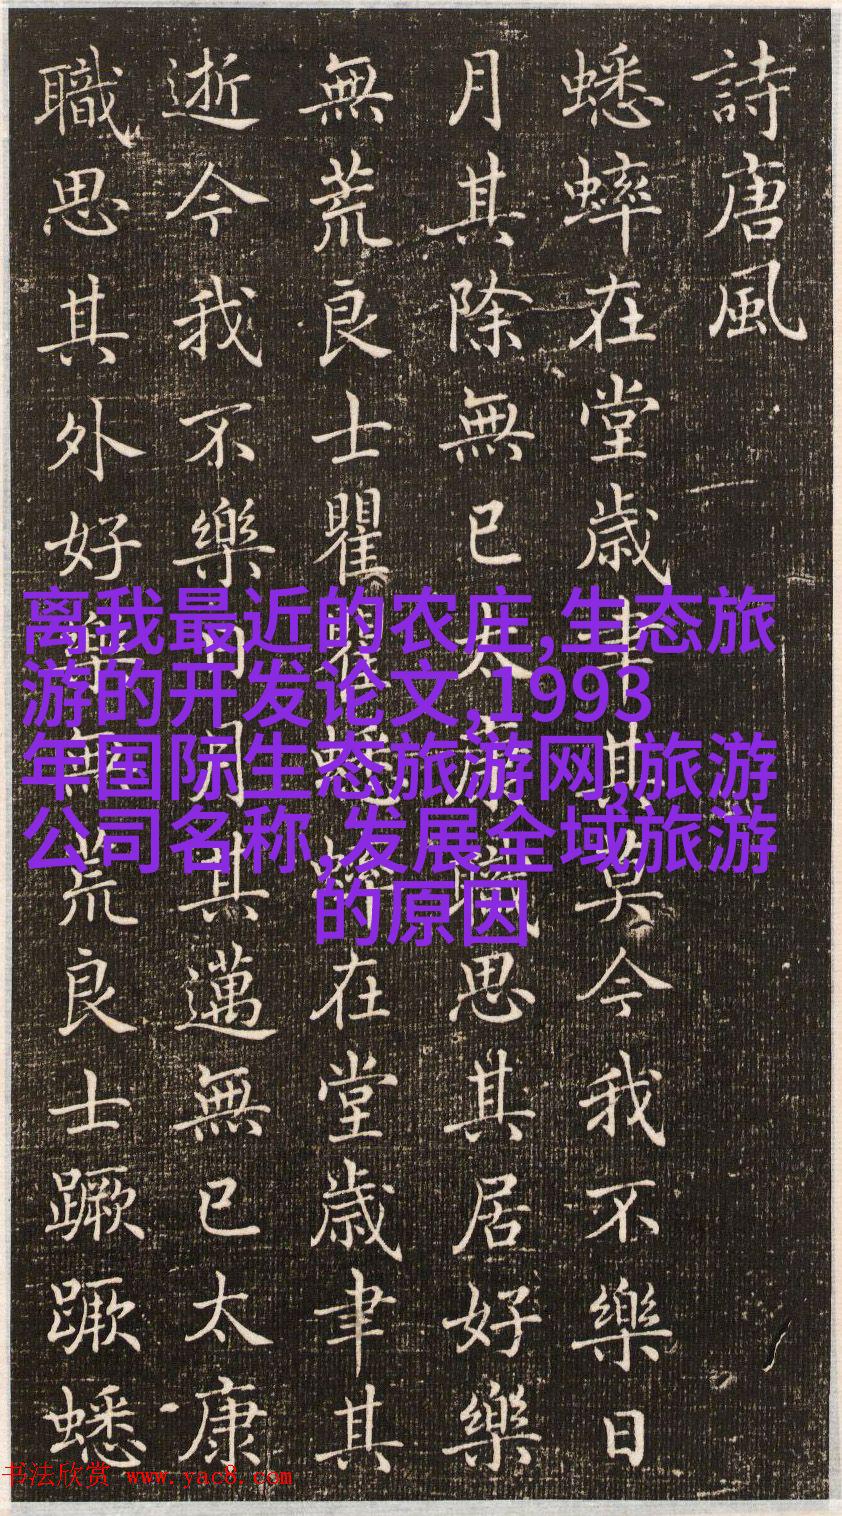 詩唐風
蟋蟀在堂歳聿其莫今我不樂日
月其除無已太康職思其居好樂
無荒良士瞿瞿蟋蟀在堂歳聿其
逝今我不樂日月其邁無已太康
職思其外好樂無荒良士蹶蹶蟋
离我最近的农庄,生态旅
游的开发论文,1993
年国际生态旅游网,旅游
公司名称,发展全域旅游
的原因
书法欣赏 www.yac8.com